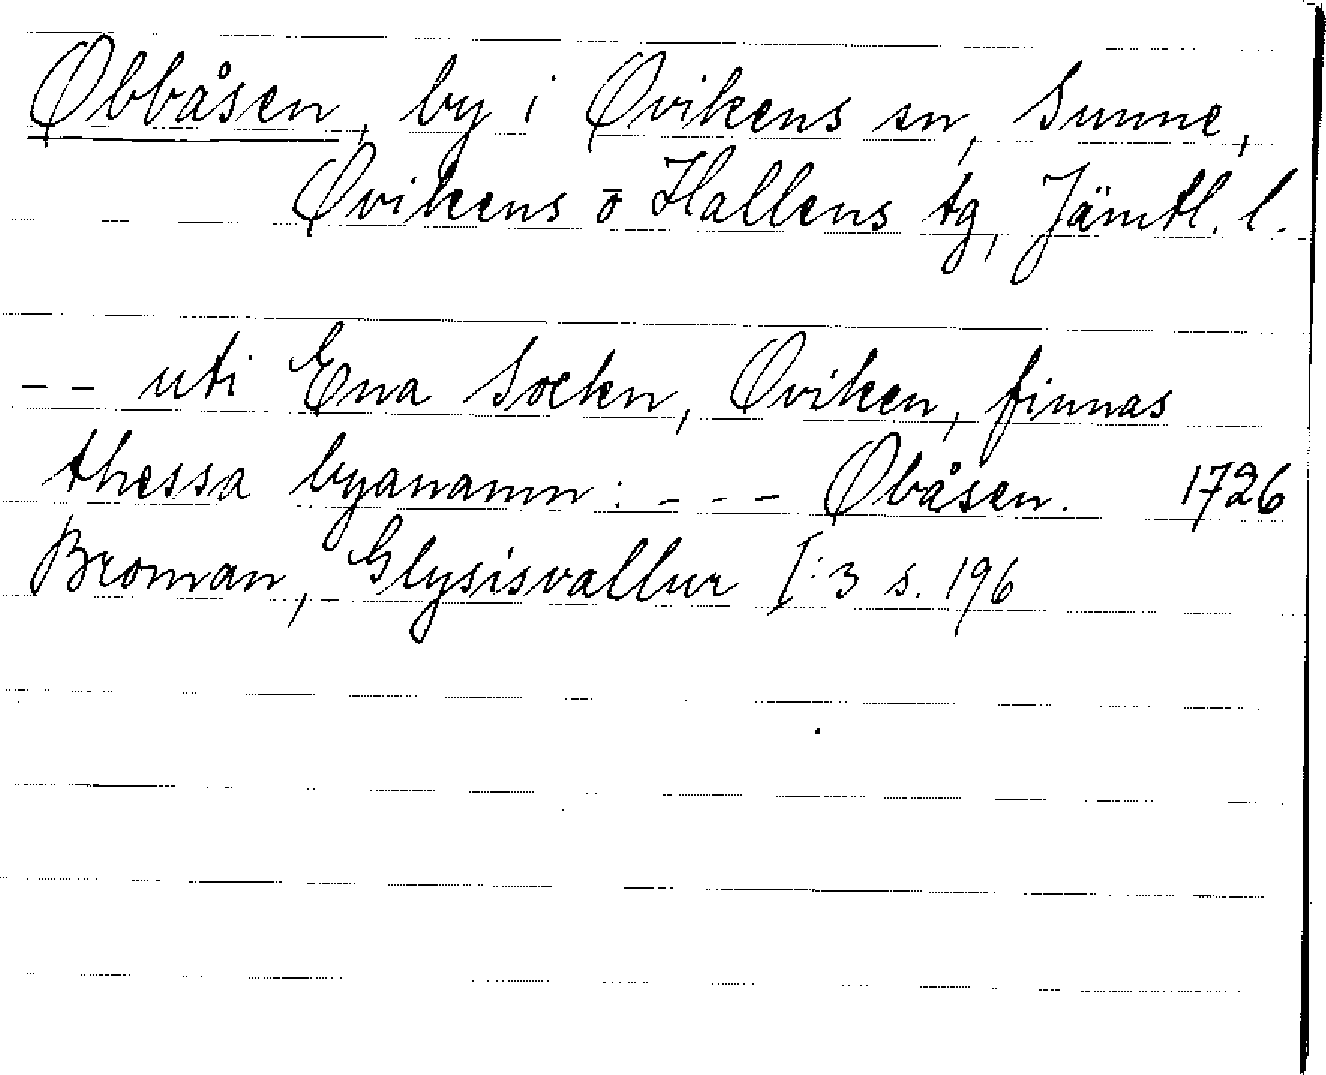 Øbbåsen, by i Øvikens sn, Sunne,
Øvikens o Hallens tg, Jämtl. l.
-- uti Ena Sockn, Øviken, finnas
thessa byanamn: --- Øbåsen. 1726
Broman, Glysisvallur I:3 s. 196